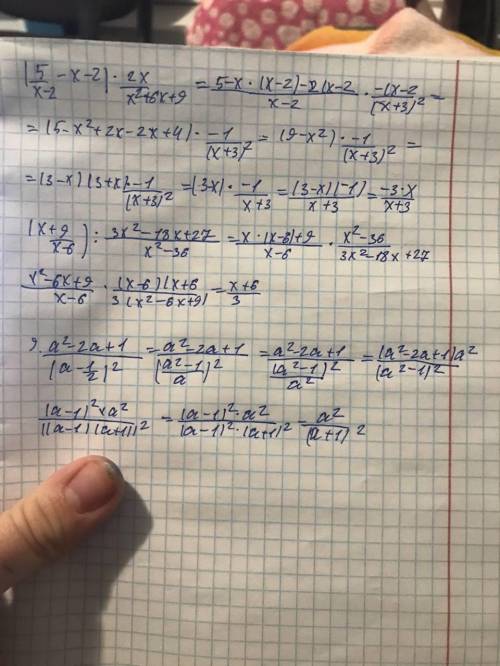 (5/(x-2) - x - 2) · 2x/(x²+6x+9) = (5-x·(x-2)-2(x-2)/(x-2) · -(x-2/(x+3)² =
= (5-x²+2x-2x+4) · -1/(x+3)² = (9-x²) · -1/(x+3)² =
= (3-x)(3+x)·-1/(x+3)² = (3-x) · -1/(x+3) = (3-x)(-1)/(x+3) = -3·x/(x+3)
(x+9/(x-6)) : (3x²-18x+27)/(x²-36) = (x·(x-6)+9)/(x-6) · (x²-36)/(3x²-18x+27)
(x²-6x+9)/(x-6) · (x-6)(x+6/3(x²-6x+9) = (x+6)/3
9. (a²-2a+1)/(a-1/2)² = (a²-2a+1)/((a²-1)/a)² = (a²-2a+1)/((a²-1)²/a²) = (a²-2a+1)a²/(a²-1)²
(a-1)²×a²/((a-1)(a+1))² = (a-1)²·a²/(a-1)²·(a+1)² = a²/(a+1)²